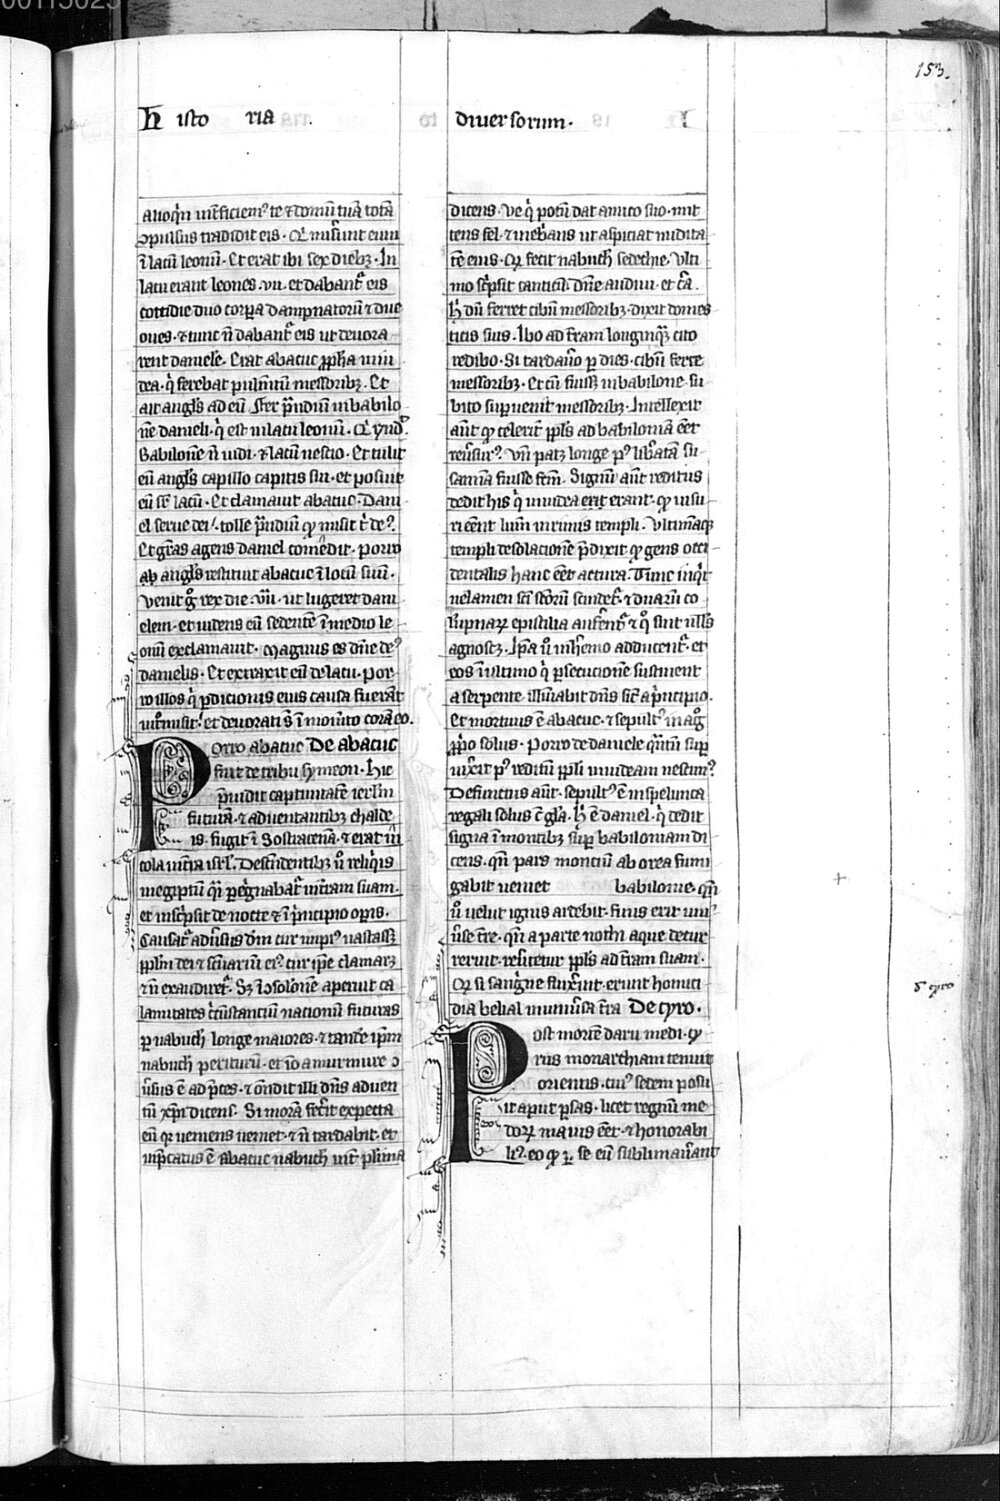 153.
historia
diuersorum.
alioqͥn int̾ficiemꝰ te ⁊ domū tuā. totā
ↄpulsus tradidit eis. Qͥ miserūt eum
ī lacū leonū. Et erat ibi sex diebꝫ. In
lacu erant leones .vii. et dabantᷣ eis
cottidie duo corpa dampnatorū ⁊ due
oues. ⁊ tunc n̄ dabantᷣ eis ut deuora
rent daniele. Erat abacuc ꝓpha in iu
dea. qͥ ferebat pulm̄tū messoribꝫ. Et
ait angl̓s ad eū. Fer p̄ndiū in babilo
ne danieli. qͥ est in lacu leonū. Qͥ r̄ndꝫ.
Babilonē n̄ uidi. ⁊ lacū nescio. Et tulit
eū angl̓s capillo capitis sui. et posuit
eū sr̄ lacū. Et clamauit abacuc. Dani
el serue dei. tolle p̄ndiū qͦ misit t̄ deꝰ.
Et gr̄as agens daniel comedit. porro
ab angl̓s restituit abacuc ī locū suū.
venit gͦ rex die .vii. ut lugeret dani
elem. et uidens eū sedentē ī medio le
onū exclamauit. Magnus es dn̄e deꝰ
danielis. Et extraxit eū de lacu. Por
ro illos qͥ ꝑdicionis eius causa fuerāt
intͦmisit. et deuorati sͭ ī momēto corā eo.
Porro abacuc De abacuc
fuit de tribu symeon. Hic
p̄uidit captiuitatē ierl̄m
futurā. ⁊ aduentantibꝫ chalde
is. fugit ī Sostracenā. ⁊ erat in
cola int̾ra isrl̓. Descēdentibꝫ ū reliqͥs
in egiptū qͥ ꝑegͥnabatᷣ in terram suam.
et insc̾psit de nocte ⁊ ī pͥncipio opis.
Causatᷣ adūsus dm̄ cur impiꝰ uastass̄
ppl̄m dei ⁊ sc̄uariū eiꝰ. cur ip̄e clamarꝫ
⁊ n̄ exaudiretᷣ. Sꝫ ī ↄsolone aperuit ca
lamitates cͥcūstanciū nationū futuras
ꝑ nabuch longe maiores. ⁊ tandē ip̄m
nabuch periturū. et iō a murmure ↄ
ūsus ē ad p̄ces. ⁊ on̄dit illi dn̄s aduen
tū xp̄i dicens. Si morā fec̾it expecta
eū qͥ ueniens ueniet. ⁊ n̄ tardabit. et
inp̄catus ē abacuc nabuch int̾ plīma
dicens. Ve qͥ potū dat amico suo. mit
tens fel. ⁊ inebͥans ut aspiciat nudita
tē eius. Qͥ fecit nabuch sedechie. Vlti
mo sc̾psit canticū. dn̄e audiui. et c̄a.
H̓ dū ferret cibū messoribꝫ. dixit domes
ticis suis. Ibo ad terram longinqͣꝫ cito
redibo. Si tardauo ꝑ dies. cibū ferte
messoribꝫ. Et cū fuiss̄ in babilone. su
bito supuenit messoribꝫ. Intellexit
aūt qͦ celerit̾ ppl̓s ad babiloniā eēt
reūsurꝰ. Vn̄ patꝫ longe pꝰ libͣatā su
sannā fuisse fcm̄. Signū aūt reditus
dedit his qͥ in iudea erit erant. qͦ uisu
ri eēnt lum̄ in ruinis templi. Vltimāqꝫ
templi desolacionē p̄dixit qͦ gens occi
dentalis hanc eēt actura. Tunc inqͥt
uelamen scī scōrū scindetᷣ. ⁊ duarū co
lūpnarꝫ epistilia auferentᷣ. ⁊ qͦ sint nll̓s
agnoscꝫ. Ip̄a ū in herēmo adducentᷣ. et
eos ī ultimo qͥ ꝑsecucionē sustinent
a serpente. illuīabit dn̄s sic̄ a pͥncipio.
Et mortuus ē abacuc. ⁊ sepultꝰ in agͦ
ꝓpͥo solus. Porro de daniele qͣntū sup
uixerit pꝰ reditū ppl̓i in iudeam nescitᷣ.
Defunctus aūt. sepultꝰ ē in spelunca
regali solus cū gl̓a. H̓ ē daniel. qͥ dedit
signa ī montibꝫ sup̄ babiloniam di
cens. qn̄ pars montiū ab orea fumi
gabit ueniet babilonie. qn̄
ū uelut ignis ardebit. finis erit uni
ūse tr̄e. qn̄ a parte nothi aque decur
rerint. reūtetur ppl̓s ad terram suam.
Qͥ si sangͥne fluxerint. erunt homici
dia belial in uniūsa tr̄a De cyro.
Post mortē darii medi. cy
rus monarchiam tenuit
orientis. cuiꝰ sedem posu
it apud ꝑsas. licet regnū me
dorꝫ maius eēt. ⁊ honorabi
liꝰ. eo qͦ ꝑ se eū sublimauerant